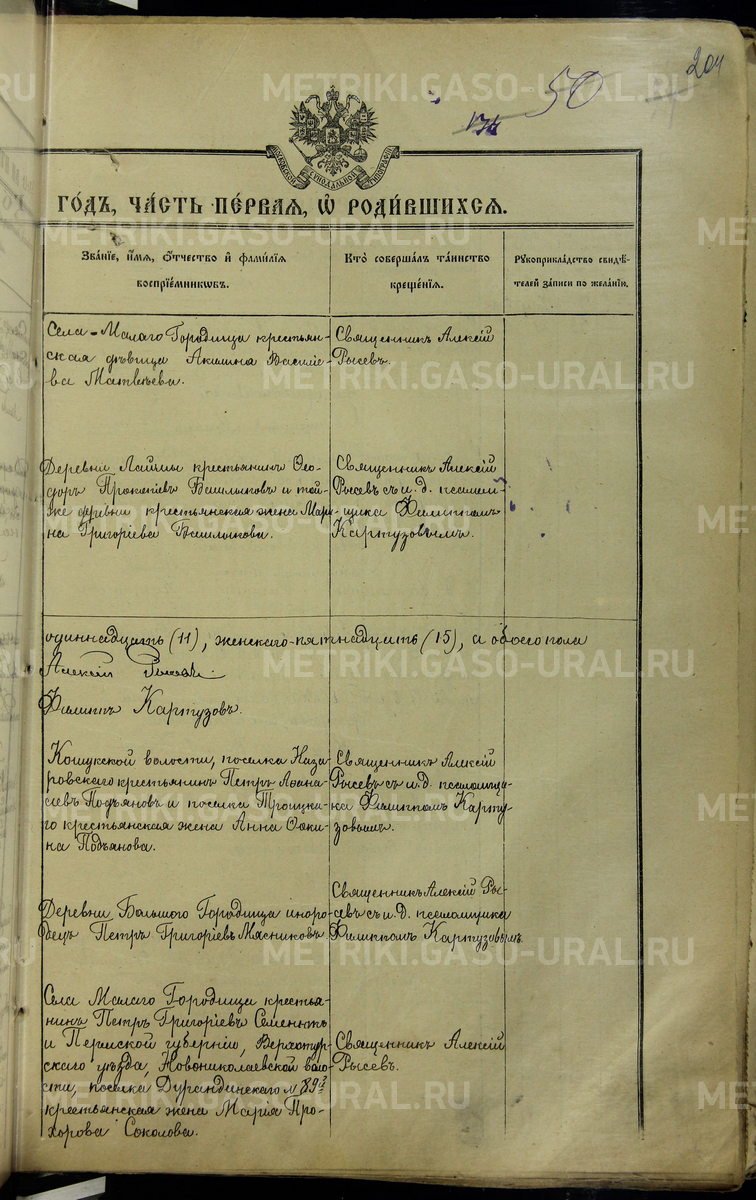 204
50
174
МОСКОВСКОЙ СѴНОДАЛЬНОЙ ТИПОГРАФІИ
ГО́ДЪ, ЧА́СТЬ ПЕ́РВАЯ, Ѡ҆ РОДИ́ВШИХСЯ.
Зва́нїе, и҆́мя, ѻ҆́тчество и҆ фами́лїя
воспрїе́мникѡвъ.
Кто̀ соверша́лъ та́инство
креще́нїя.
Рꙋкоприкла́дство свидѣ́-
телей за́писи по жела́нїю.
Села Малаго Городища крестьян-
ская дѣвица Акилина Василіе-
ва Матвѣева.
Священникъ Алексій
Рысевъ.
Деревни Лаймы крестьянинъ Ѳео-
доръ Прокопіевъ Башлыковъ и той-
же деревни крестьянская жена Мари-
на Григоріева Башлыкова.
Священникъ Алексій
Рысевъ съ и. д. псалом-
щика Филиппомъ
Картузовымъ.
одиннадцать (11), женскаго-пятнадцать (15), а обоего пола
Алексій Рысевъ
Филиппъ Картузовъ.
Кошукской волости, поселка Наза-
ровскаго крестьянинъ Петръ Аѳана-
сіевъ Подъяновъ и поселка Троицка-
го крестьянская жена Анна Ѳоки-
на Подъянова.
Священникъ Алексій
Рысевъ съ и. д. псаломщи-
ка Филиппомъ Карту-
зовымъ.
Деревни Большого Городища иноро-
децъ Петръ Григоріевъ Мясниковъ.
Священникъ Алексій Ры-
севъ съ и. д. псаломщика
Филиппомъ Картузовымъ.
Села Малаго Городища крестья-
нинъ Петръ Григоріевъ
и Пермской губерніи, Верхотур-
скаго уѣзда, Новониколаевской воло-
сти, поселка Дурандинскаго №
крестьянская жена Марія Про-
хорова Соколова.
Священникъ Алексій
Рысевъ.
METRIKI.GASO-URAL.RU
METRIKI.GASO-URAL.RU
METRIKI.GASO-URAL.RU
METRIKI.GASO-URAL.RU
METRIKI.GASO-URAL.RU
METRIKI.GASO-URAL.RU
METRIKI.GASO-URAL.RU
METRIKI.GASO-URAL.RU